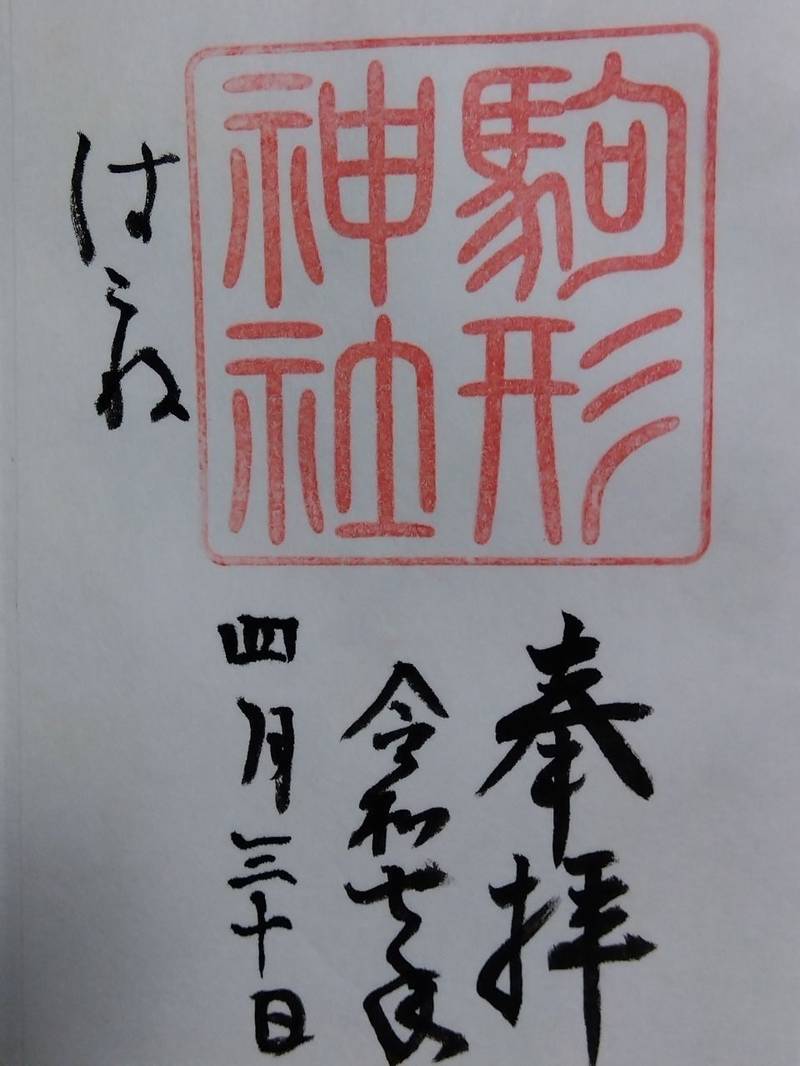 駒形
神社
はこね
奉拝
令和七年
四月三十日